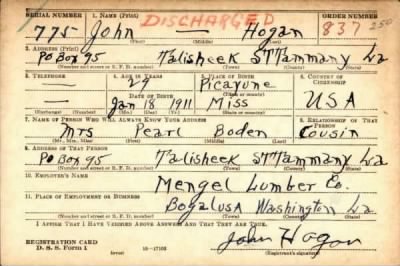 SERIAL NUMBER 1. NAME (Print) ORDER NUMBER
DISCHARGED
775 John — Hogan 837 250
(First) (Middle) (Last)
2. ADDRESS (Print)
PO Box 95 Talisheek St Tammany La
(Number and street or R. F. D. number) (Town) (County) (State)
3. TELEPHONE 4. AGE IN YEARS 5. PLACE OF BIRTH 6. COUNTRY OF CITIZENSHIP
— 29 Picayune
(Town or county)
DATE OF BIRTH
— Jan 18 1911 Miss USA
(Exchange) (Number) (Mo.) (Day) (Yr.) (State or country)
7. NAME OF PERSON WHO WILL ALWAYS KNOW YOUR ADDRESS 8. RELATIONSHIP OF THAT PERSON
Mrs Pearl Boden Cousin
(Mr., Mrs., Miss) (First) (Middle) (Last)
9. ADDRESS OF THAT PERSON
PO Box 95 Talisheek St Tammany La
(Number and street or R. F. D. number) (Town) (County) (State)
10. EMPLOYER'S NAME
Mengel Lumber Co.
11. PLACE OF EMPLOYMENT OR BUSINESS
Bogalusa Washington La
(Number and street or R. F. D. number) (Town) (County) (State)
I AFFIRM THAT I HAVE VERIFIED ABOVE ANSWERS AND THAT THEY ARE TRUE.
John Hogan
REGISTRATION CARD
D. S. S. Form 1 (over) 16—17105 (Registrant's signature)